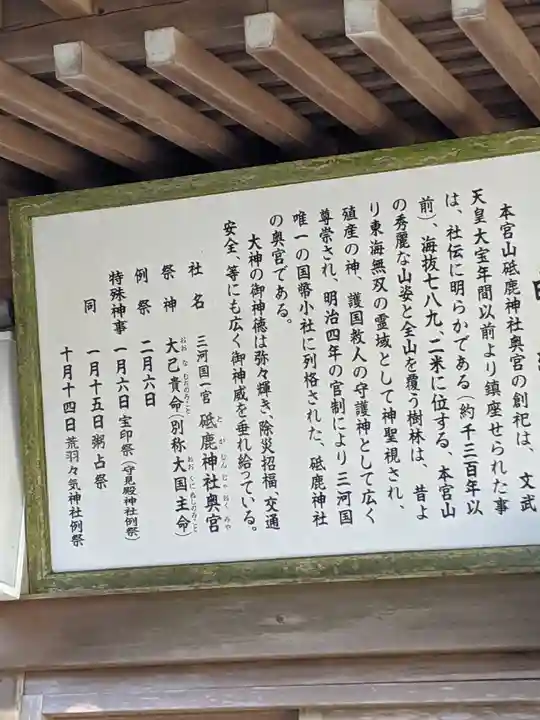 本宮山砥鹿神社奥宮の創祀は、文武
天皇大宝年間以前より鎮座せられた事
は、社伝に明らかである(約千三百年以
前)、海抜七八九、二米に位する、本宮山
の秀麗な山姿と全山を覆う樹林は、昔よ
り東海無双の霊域として神聖視され、
殖産の神、護国救人の守護神として広く
尊崇され、明治四年の官制により三河国
唯一の国幣小社に列格された、砥鹿神社
の奥宮である。
大神の御神徳は弥々輝き、除災招福、交通
安全、等にも広く御神威を垂れ給っている。
社名 三河国一宮 砥鹿神社奥宮
とがじんじゃおくみや
祭神 大己貴命(別称大国主命)
おおなむちのみこと おおくにぬしのみこと
例祭 二月六日
特殊神事 一月六日 宝印祭(守見殿神社例祭)
同 一月十五日 粥占祭
十月十四日 荒羽々気神社例祭